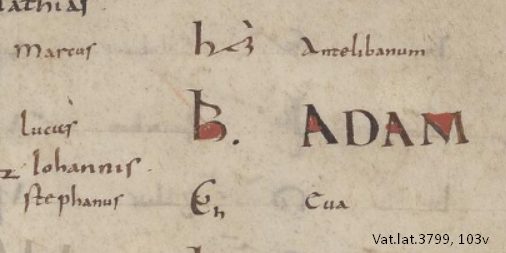 athias.
Marcus h Antelibanum
Lucius B. ADAM
Iohannis.
Stephanus En Cua
Vat.lat.3799, 103v